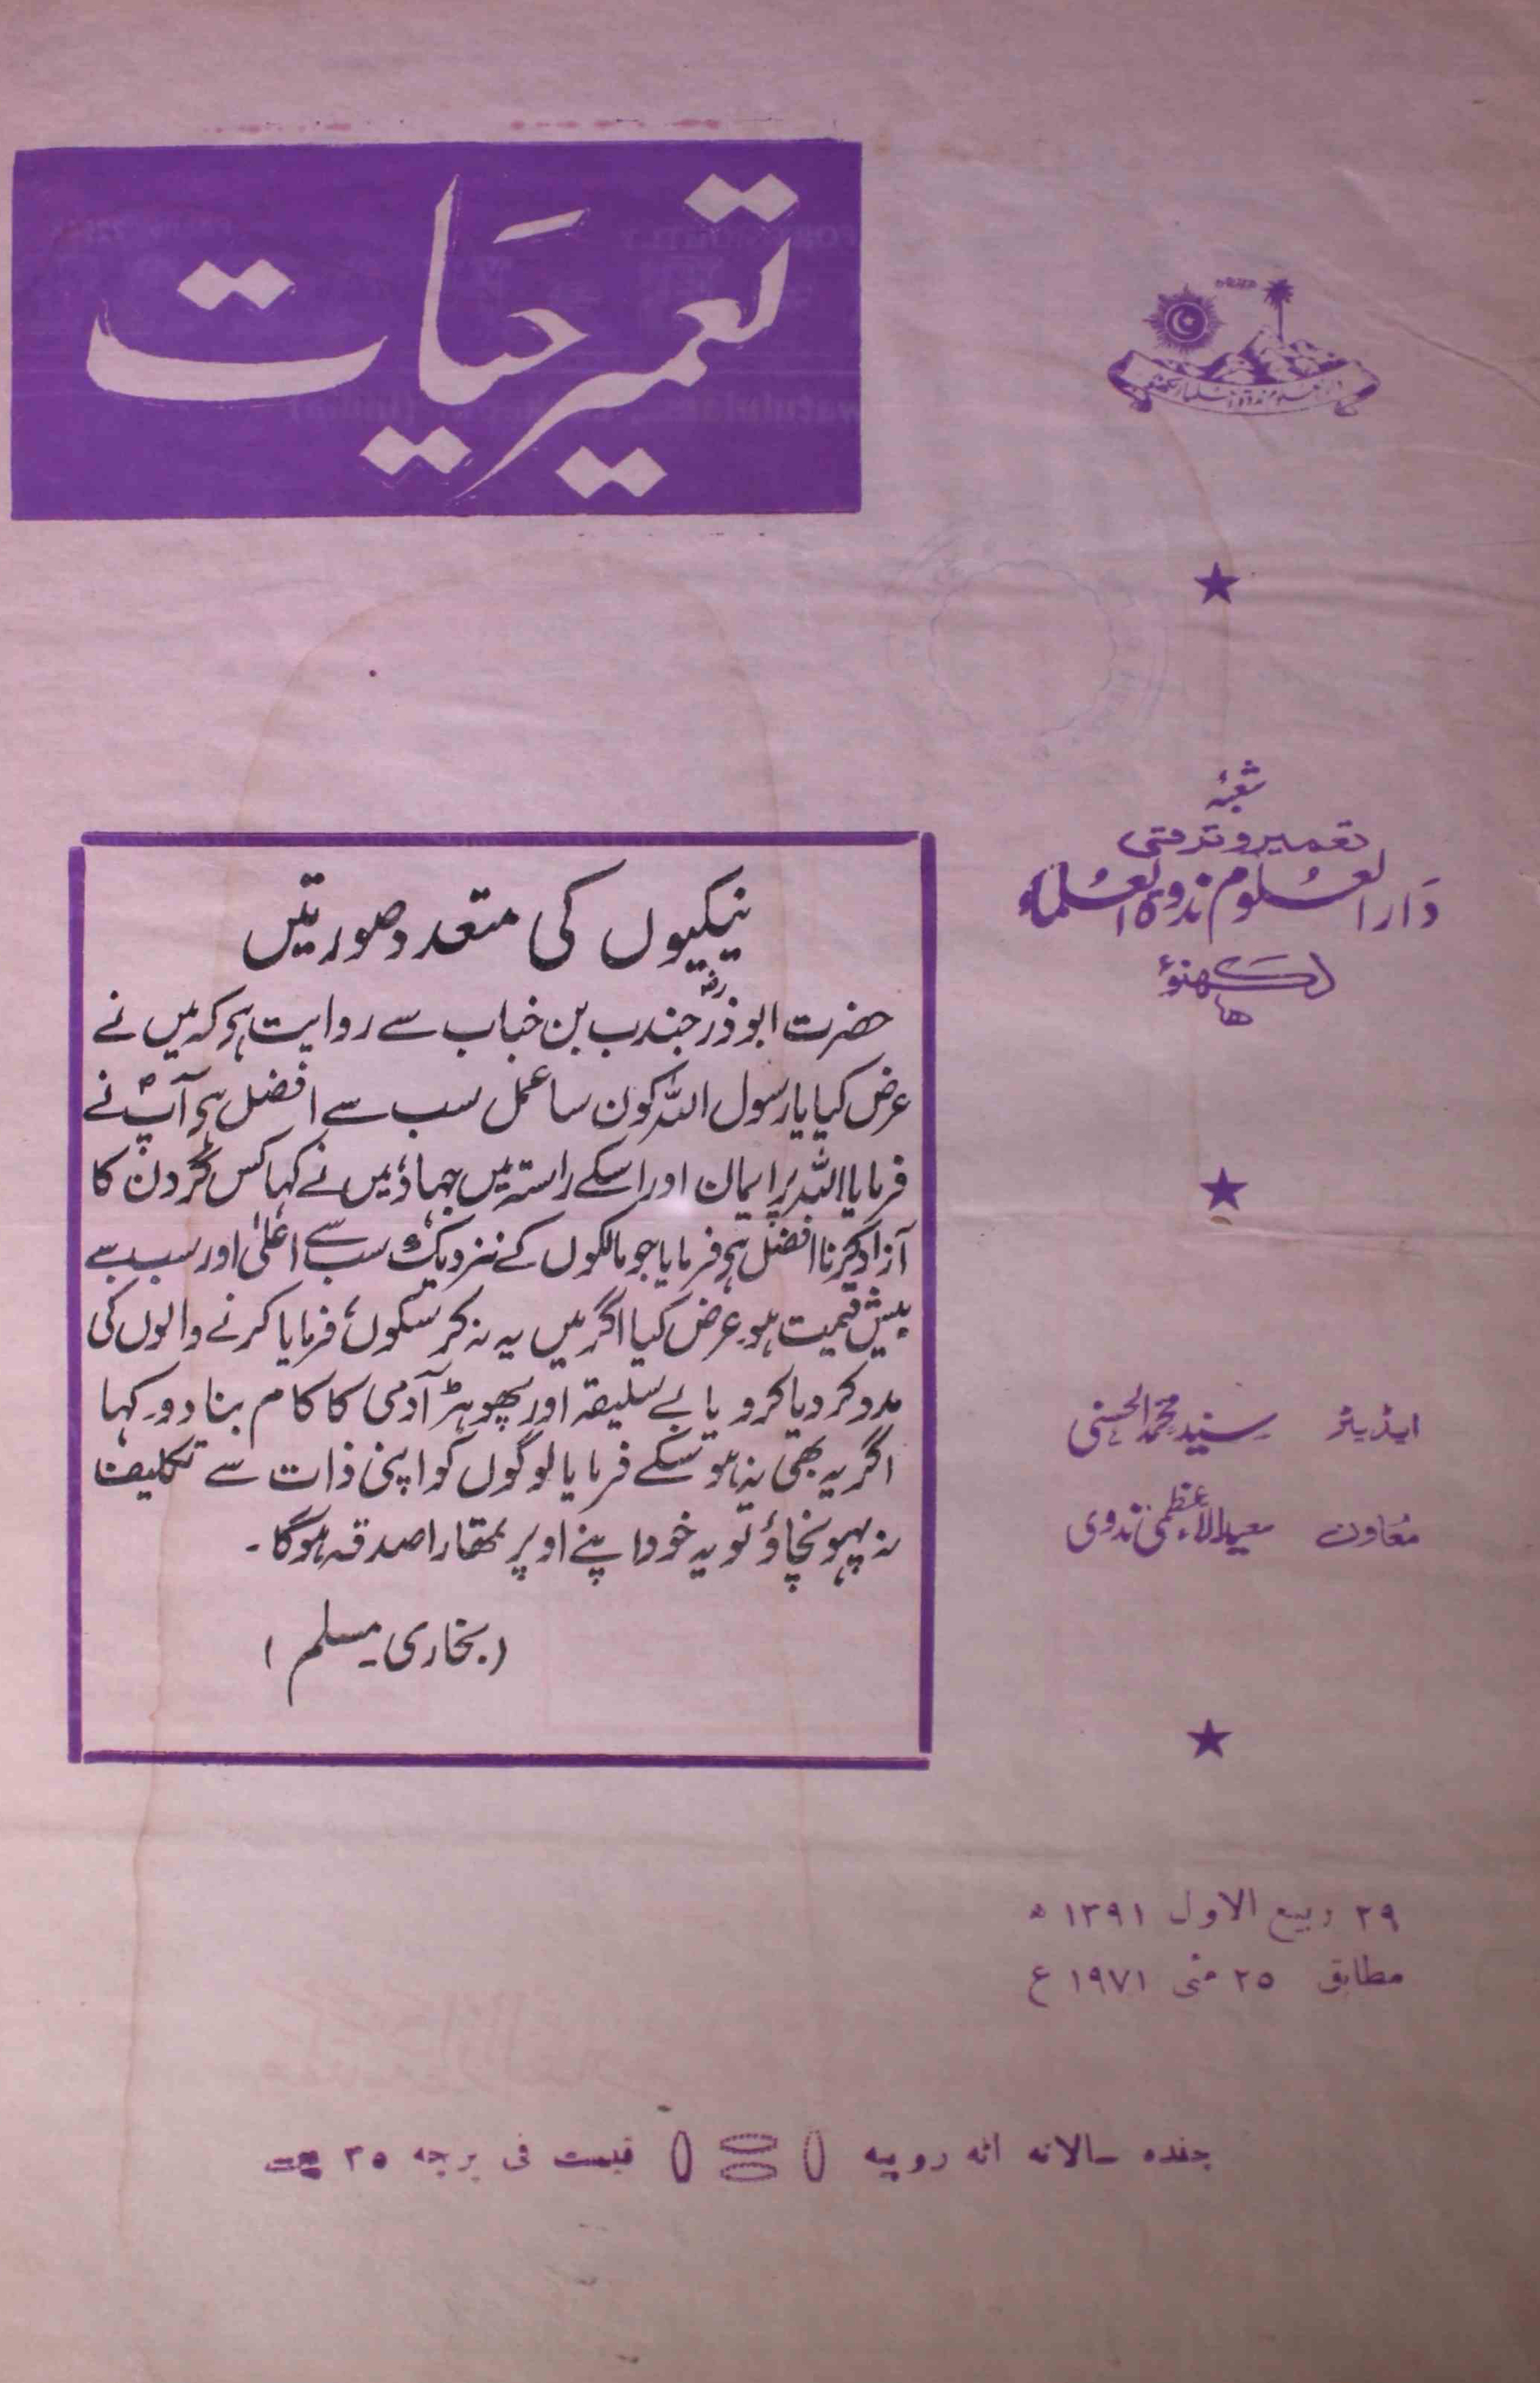 تعمیر حیات
شعبۂ
تعمیر و ترقی
دارالعلوم ندوۃ العلماء
لکھنؤ
نیکیوں کی متعدد صورتیں
حضرت ابوذرؓ جندب بن خباب سے روایت ہو کہ میں نے
عرض کیا یا رسول اللہ کون سا عمل سب سے افضل ہو آپؐ نے
فرمایا اللہ پر ایمان اور اسکے راستہ میں جہاد، میں نے کہا کس گردن کا
آزاد کرنا افضل ہو فرمایا جو مالکوں کے نزدیک سب سے اعلیٰ اور سب سے
بیش قیمت ہو۔ عرض کیا اگر میں یہ نہ کر سکوں، فرمایا کرنے والوں کی
مدد کر دیا کرو یا بے سلیقہ اور پھوہڑ آدمی کا کام بنا دو۔ کہا
اگر یہ بھی نہ ہو سکے فرمایا لوگوں کو اپنی ذات سے تکلیف
نہ پہونچاؤ تو یہ خود اپنے اوپر تمھارا صدقہ ہوگا۔
(بخاری۔ مسلم)
ایڈیٹر سید محمد الحسنی
معاون سعید الاعظمی ندوی
۲۹ ربیع الاول ۱۳۹۱ ھ
مطابق ۲۵ مئی ۱۹۷۱ ع
چندہ سالانہ آٹھ روپیہ قیمت فی پرچہ ۳۵ پیسے